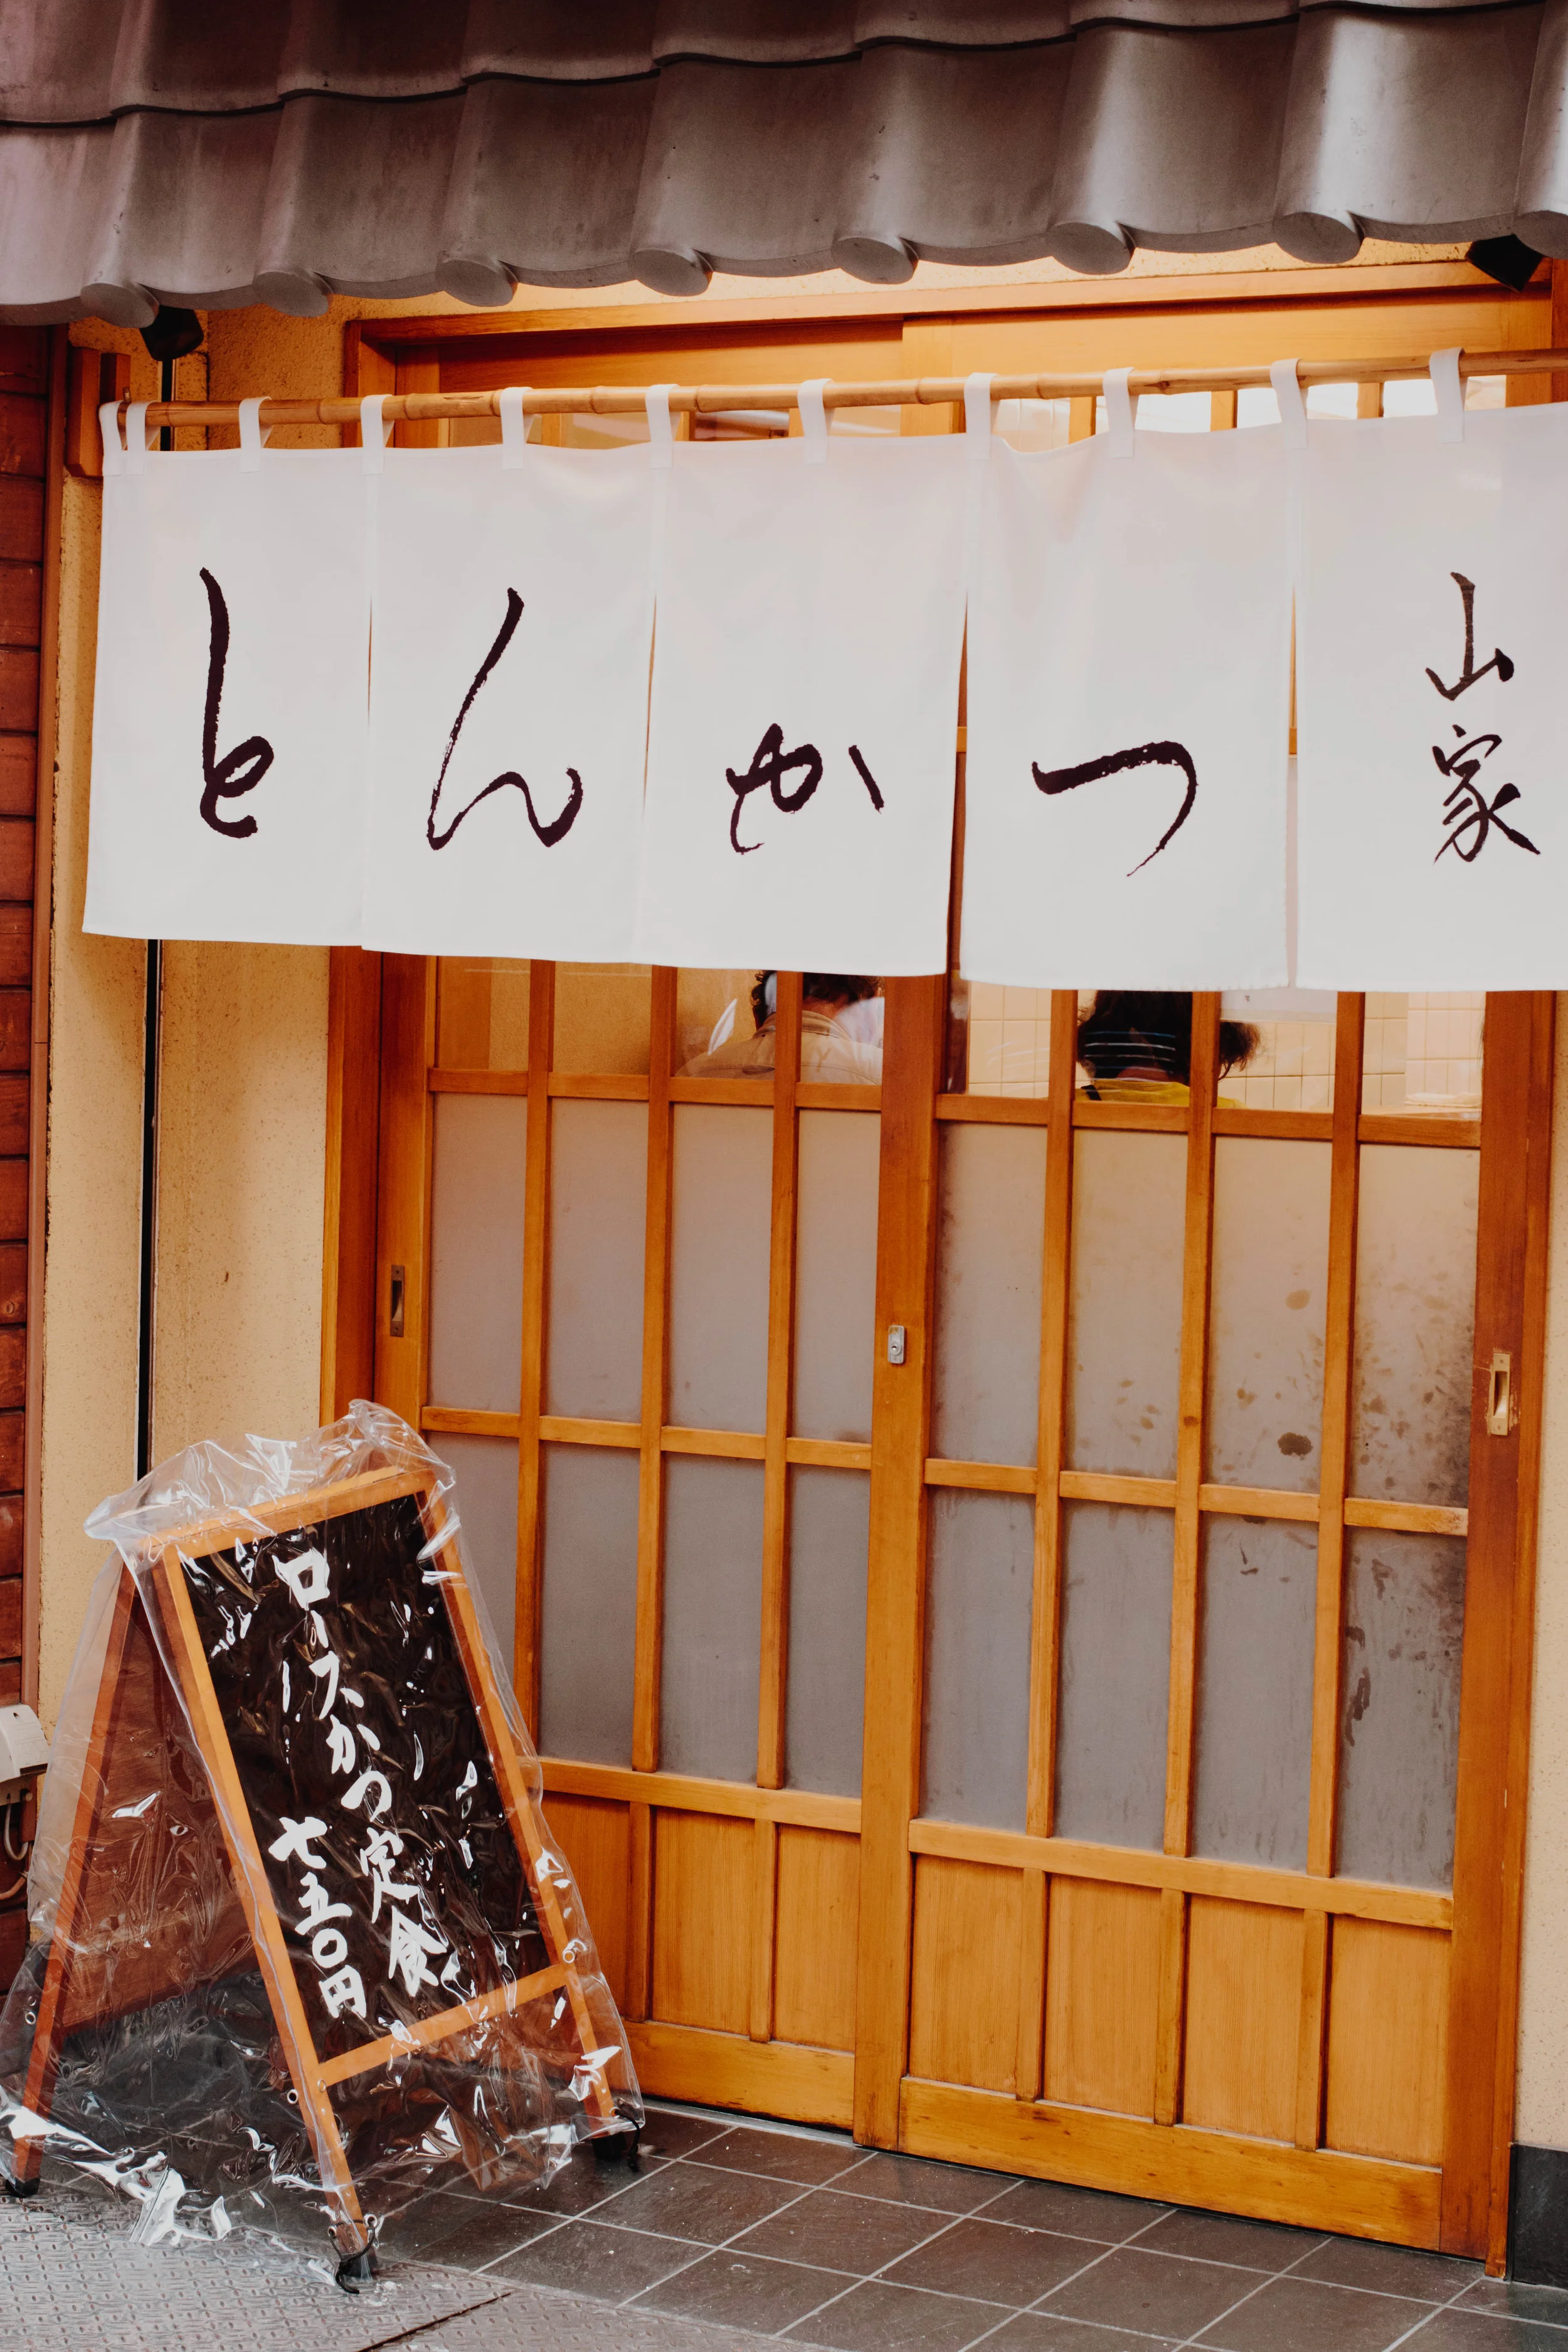 とんかつ
山家
ロースかつ定食
七五〇円